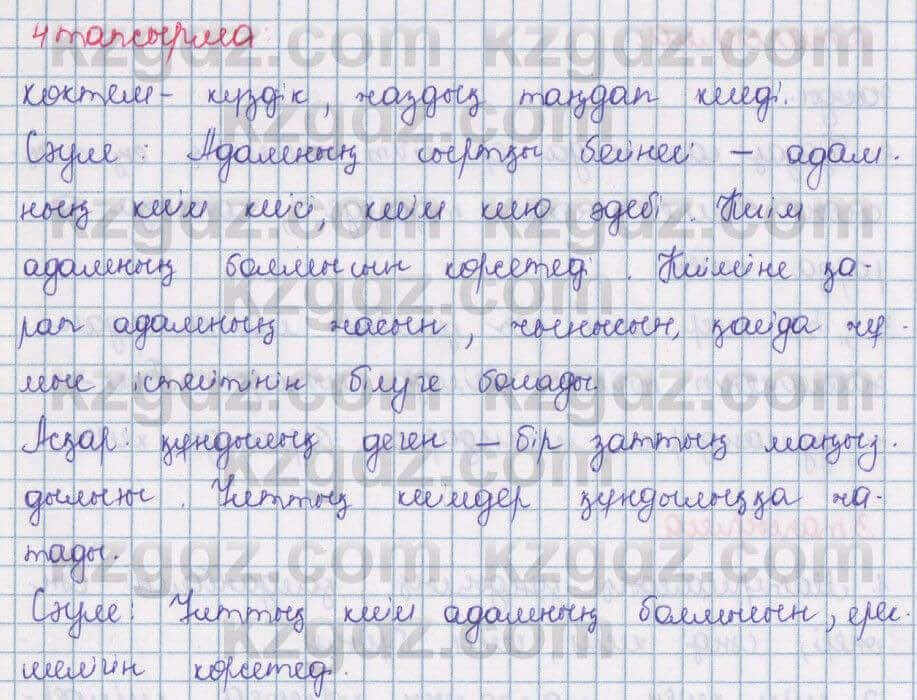 4 тапсырма
көктем - күздік, жаздық таңдап киеді.
Сәуле: Адамның сыртқы бейнесі - адам-
ның киім киісі, киім кию әдебі. Киім
адамның болмысын көрсетеді. Киіміне қа-
рап адамның жасын, жынысын, қайда жұ-
мыс істейтінін білуге болады.
Асқар: құндылық деген - бір заттың маңыз-
дылығы. Ұлттық киімдер құндылыққа жа-
тады.
Сәуле: Ұлттық киім адамның болмысын, ерек-
шелігін көрсетед.
kzgdz.com